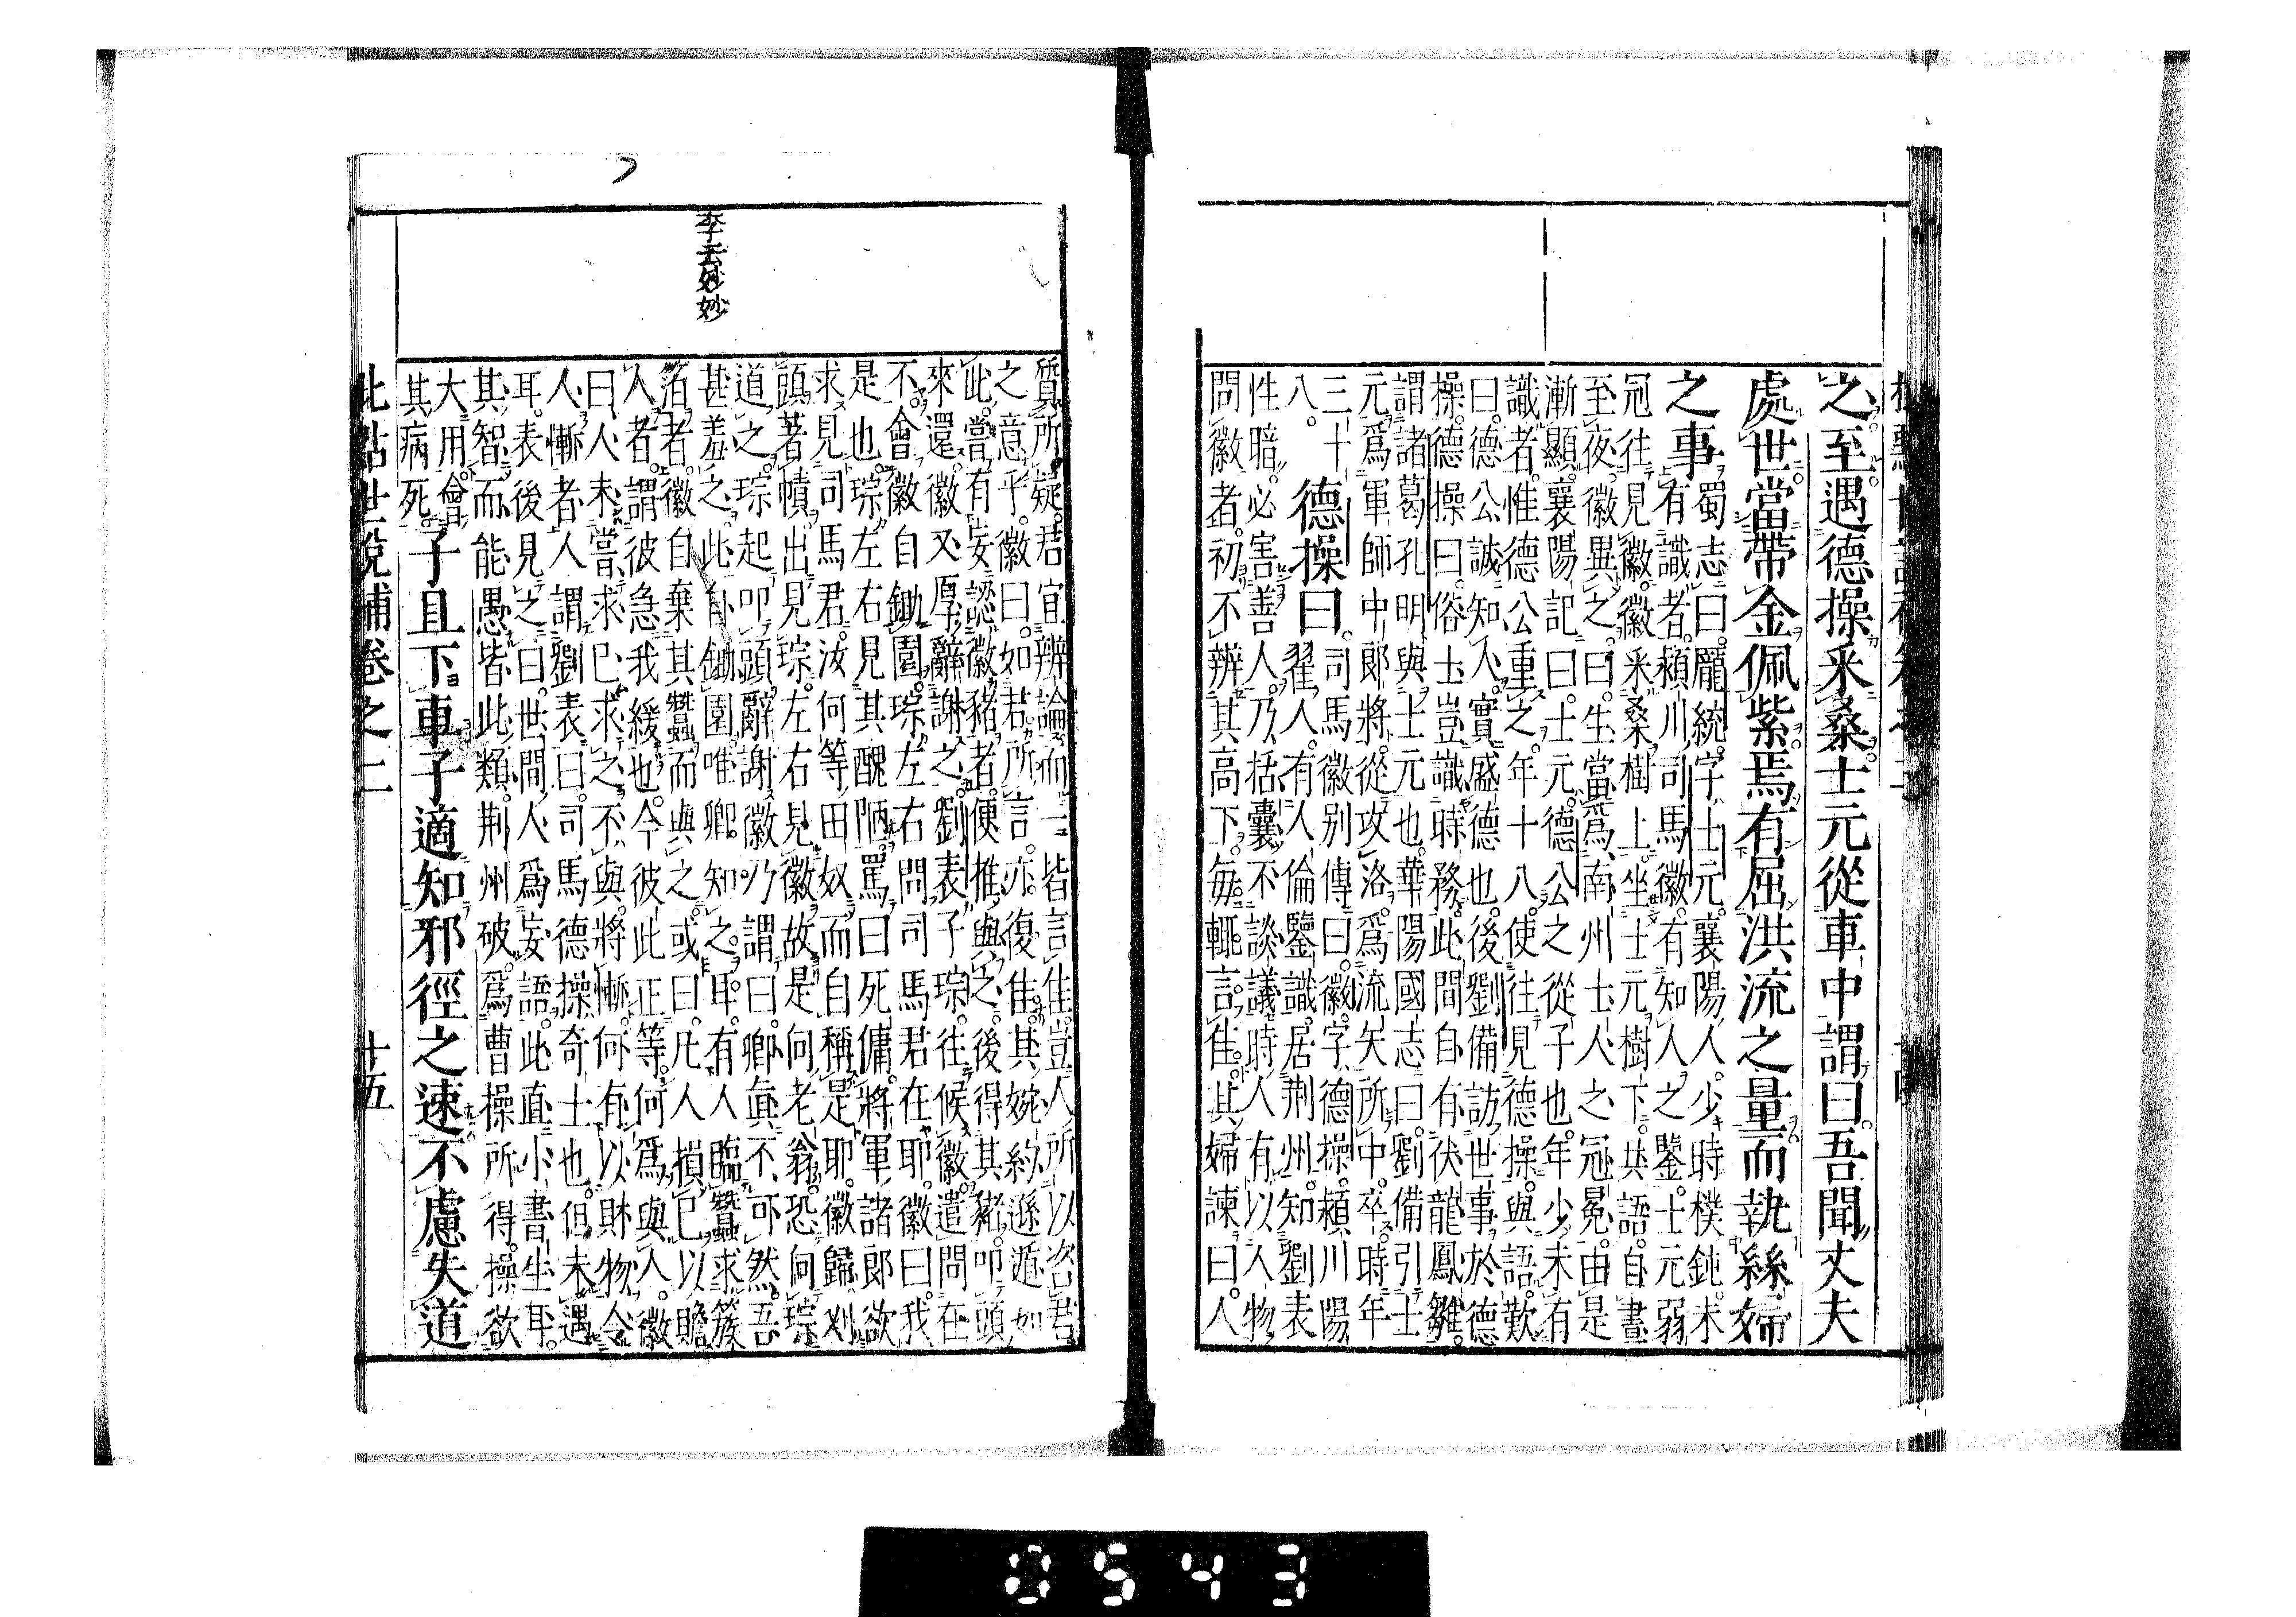 之至遇德操采桑士元從車中謂曰吾聞丈夫
處世當帶金佩紫焉有屈洪流之量而執絲婦
之事
蜀志曰龐統字士元襄陽人少時樸鈍未
有識者潁川司馬徽有知人之鑒士元弱
冠往見徽徽采桑樹上坐士元樹下共語自晝
至夜徽異之曰生當爲南州士人之冠冕由是
漸顯襄陽記曰士元德公之從子也年少未有
識者惟德公重之年十八使往見德操與語歎
曰德公誠知人實盛德也後劉備訪世事於德
操德操曰俗士豈識時務此間自有伏龍鳳雛
謂諸葛孔明與士元也華陽國志曰劉備引士
元爲軍師中郎將從攻洛爲流矢所中卒時年
三十
八
德操曰
司馬徽別傳曰徽字德操潁川陽
翟人有人倫鑒識居荆州知劉表
性暗必害善人乃括囊不談議時人有以人物
問徽者初不辨其高下每輒言佳其婦諫曰人
質所疑君宜辨論而一皆言佳豈人所以咨君
之意乎徽曰如君所言亦復佳其婉約遜遁如
此嘗有妄認徽豬者便推與之後得其豬叩頭
來還徽又厚辭謝之劉表子琮往候徽遣問在
不會徽自鋤園琮左右問司馬君在耶徽曰我
是也琮左右見其醜陋罵曰死傭將軍諸郎欲
求見司馬君汝何等田奴而自稱是耶徽歸刈
頭著幘出見琮左右見徽故是向老翁恐向琮
道之琮起叩頭辭謝徽乃謂曰卿眞不可然吾
甚羞之此自鋤園唯卿知之耳有人臨蠶求簇
者徽自棄其蠶而與之或曰凡人損已以贍
人者謂彼急我緩也今彼此正等何爲與人徽
曰人未嘗求已求之不與將慚何有以財物令
人慚者人謂劉表曰司馬德操奇士也但未遇
耳表後見之曰世間人爲妄語此直小書生耳
其智而能愚皆此類荆州破爲曹操所得操欲
大用會
其病死
子且下車子適知邪徑之速不慮失道
李云妙妙
世說補卷之二
十五
0543